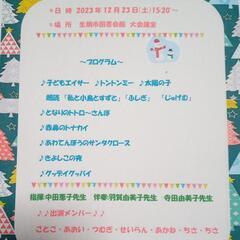 ＊日 時 2023年 12月 23日(土)15:20〜
＊場 所 生駒市図書会館 大会議室
〜プログラム〜
♪子どもエイサー ♪トントンミー ♪太陽の子
朗読 「私と小鳥とすずと」「ふしぎ」 「じゅげむ」
♪となりのトトロ〜さんぽ
♪赤鼻のトナカイ
♪あわてんぼうのサンタクロース
♪きよしこの夜
♪グッデイグッバイ
指揮:中田恵子先生 伴奏:羽賀由美子先生 寺田由美子先生
♪♪出演メンバー♪♪
ことこ・あおい・つむぎ・せいらん・あかね・ちさ・ちさ